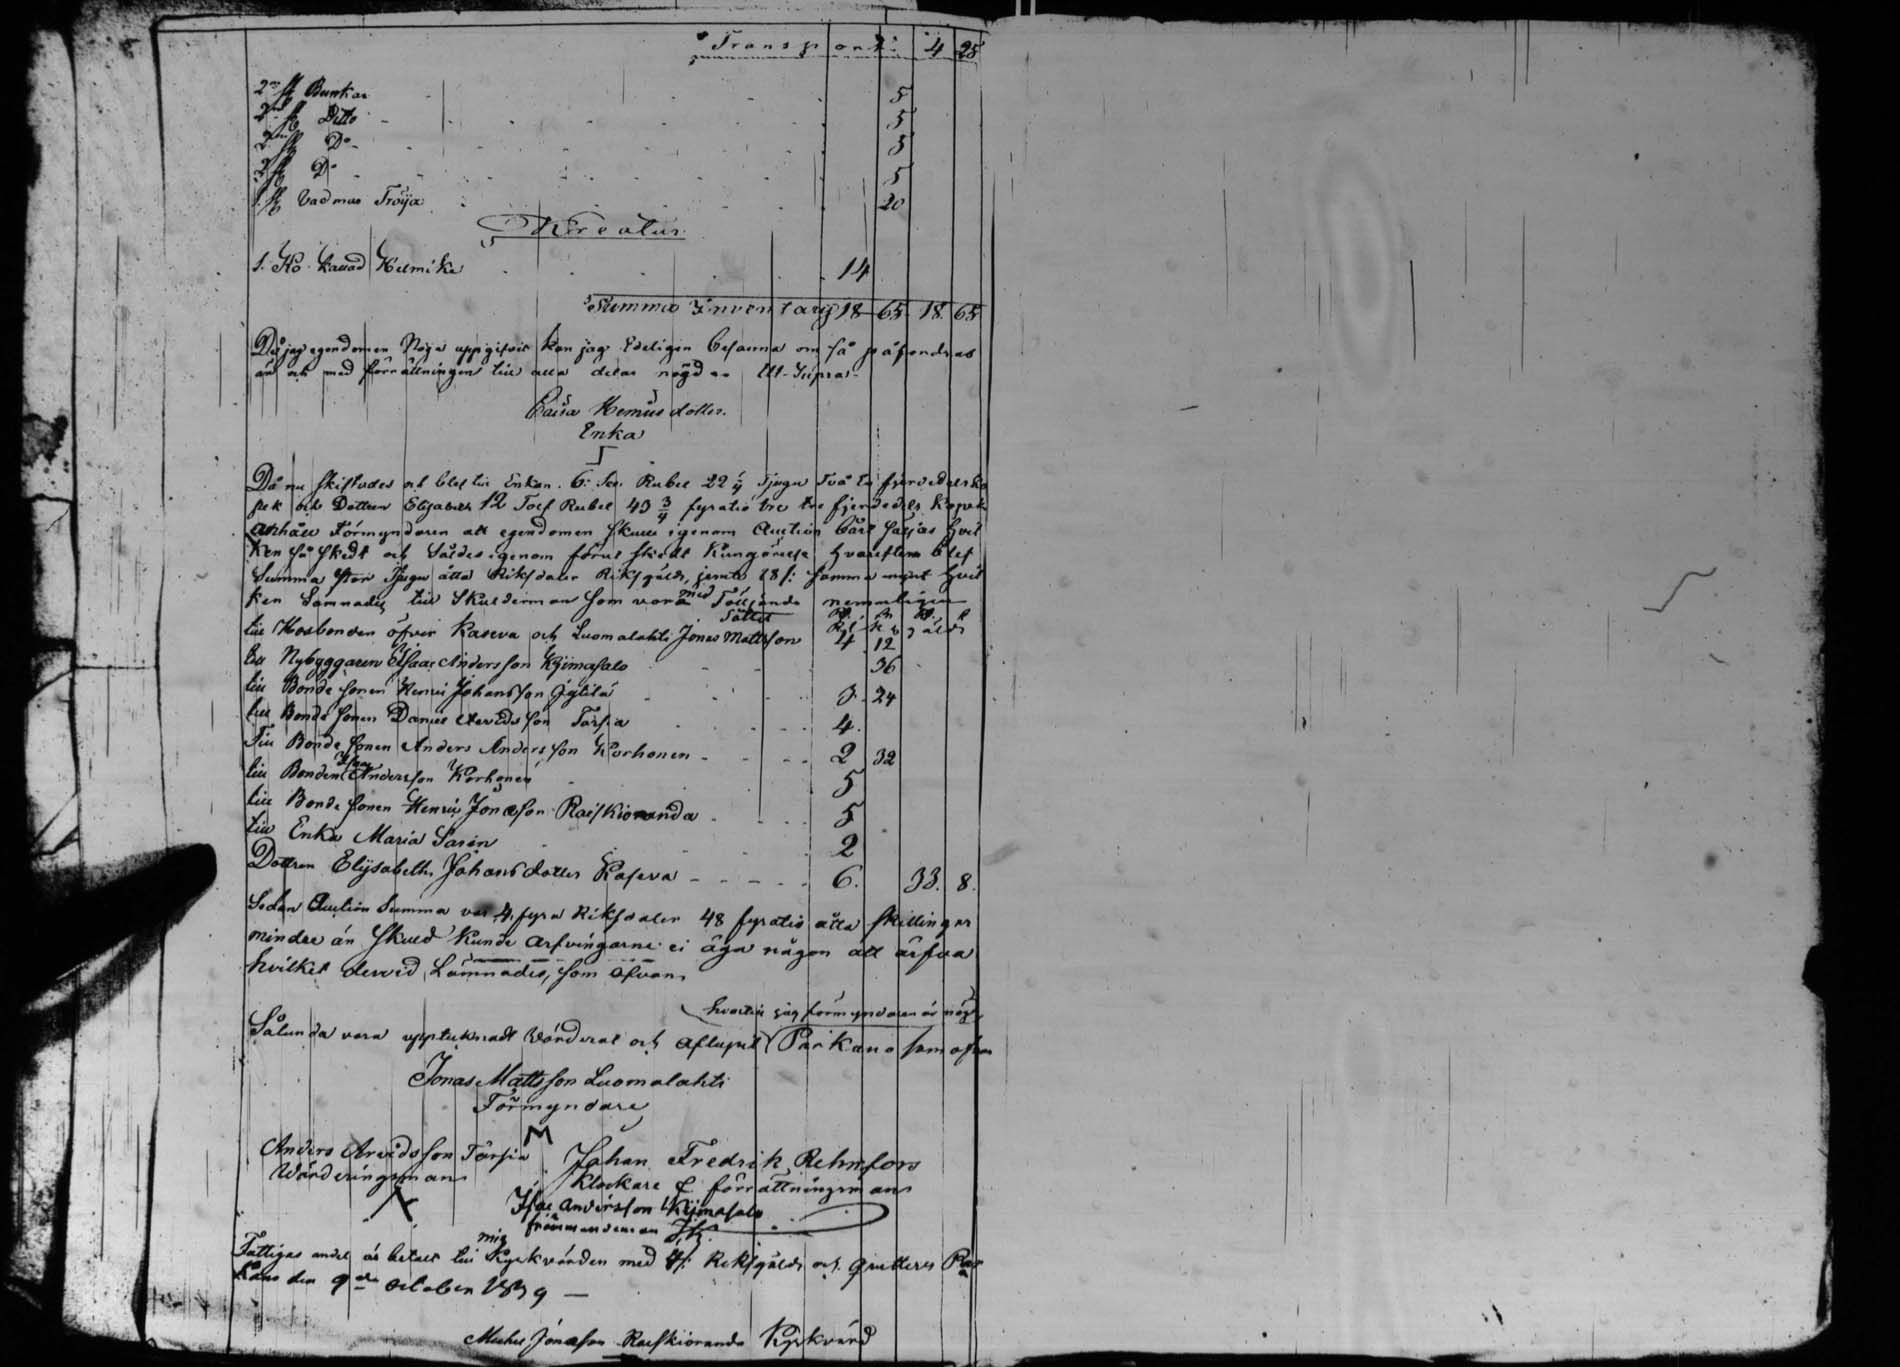 Transport: 4 25
2ne st Bunkar - 5
2ne st Ditto - 5
2ne st Do - 5
2 st Do - 5
1. st Vadmas Tröija 20
Kreatur
1. Ko kallad Helmike 14
Summa Inventary 18 65 18. 65
Det jag egendomen Noga uppgifvit kan jag Edeligen besanna om så påfordras
är och med förrättningen till alla delar nögd. Ut-Supra.
Caisa Hemminsdotter.
Enka
Då nu skiftades och blef till Enkan. 6: Sex Rubel 22 1/4 Tjugu Två en fjerdedels ko
pek och Dottren Elisabeth 12 Tolf Rubel 43 3/4 fyratio tre tre fjerdedels kopek
anhåller Förmyndaren att egendomen skulle igenom Auction bäst säljas hvil
ken så skedt och Såldes igenom förut skedt Kungörelse hvarefter blef
Summa stor Tjugu åtta Riksdaler Riksgälds, jemte 28 s: samma mynt hvil
ken Lämnades till Skulderman som vora med Följande nemmligen
Till Hosbonden öfver Kaseva och Luomalahti Jonas Mattsson 4. 12
till Nybyggaren Isaac Andersson Kyimasalo 36
till Bonde sonen Henric Johansson Jylilä 3. 24
till Bonde sonen Daniel Arvidsson Tarsia 4.
Till Bonde sonen Anders Andersson Korhonen - 2 32
till Bonden Andersson Korhonen 5
till Bonde sonen Henric Jonasson Raiskioranda 5
till Enka Maria Sarin 2
Dottren Elijsabeth Johansdotter Kaseva - 6. 33. 8.
Sedan Auction Summa var 4. fyra Riksdaler 48 fyratio åtta skillingar
mindre än skuld kunde arfvingarne ei äga någon att ärfva
hvilket derved Lämnades, som ofvan
hvartill jag förmyndaren är nögd
Sålunda vara upptecknadt Värderat och aflupet Parkano som ofvan
Jonas Mattsson Luomalahti
Förmyndare
Anders Arvidsson Tarsia Johan Fredrik Rehnfors
Wärderingsman Klockare & förrättningsman
Isac Andersson Kyimasalo
främmandeman
Fattigas andel är betalt till mig Kyrkvärden med Riksgälds och quitteras Par
kano den 9de October 1839 —
Michel Jonasson Raiskioranda Kyrkvärd